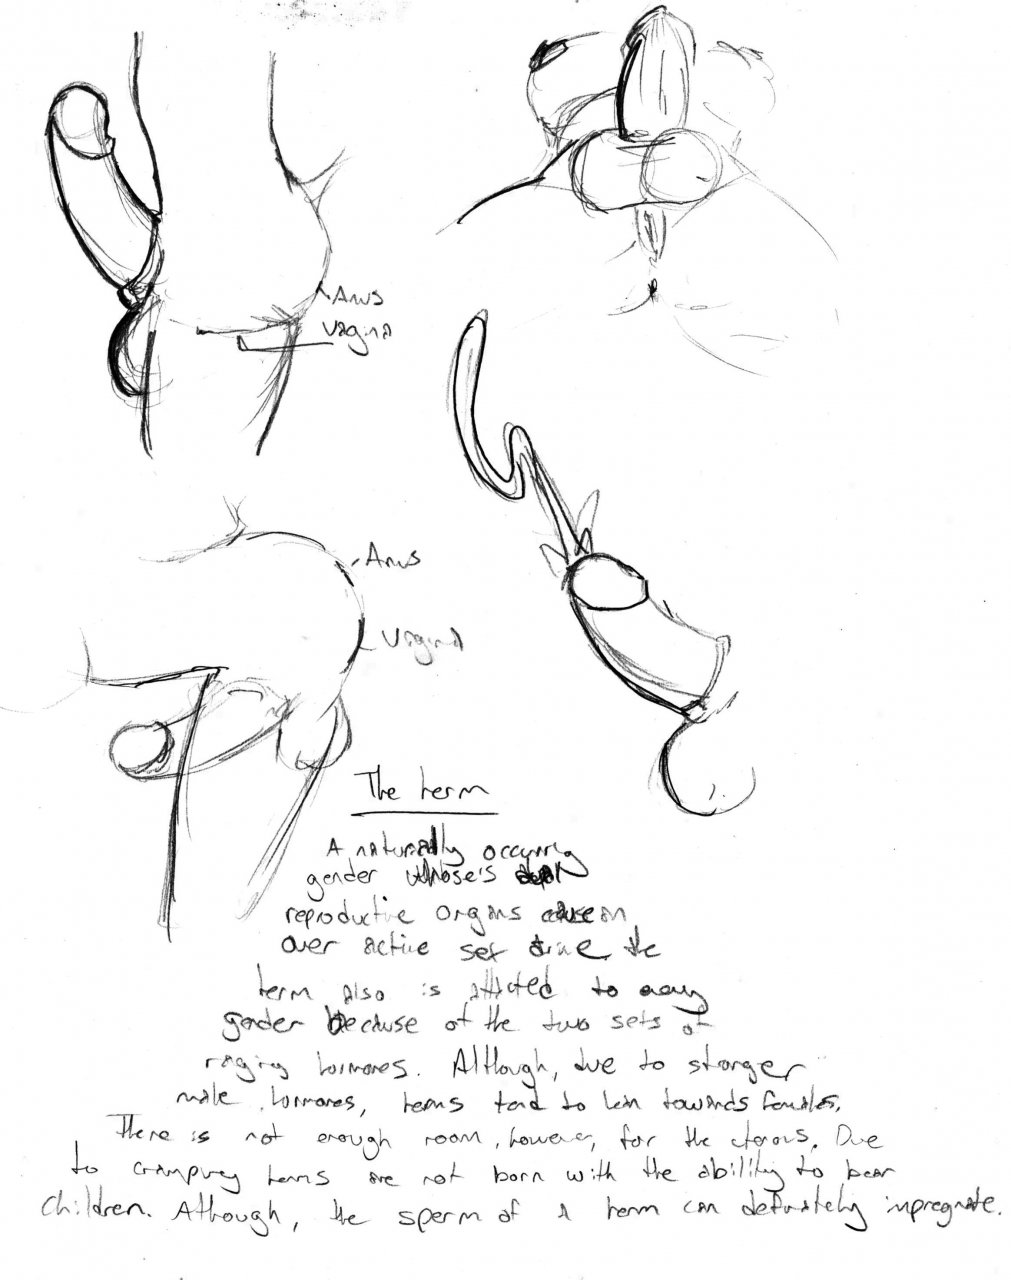 Anus
Vagina
Anus
Vagina
The herm
A naturally occurring
gender whose's dual
reproductive organs cause an
over active sex drive. the
herm also is attracted to every
gender because of the two sets of
raging hormones. Although, due to stronger
male hormones, herms tend to lean towards females.
There is not enough room, however, for the uterous. Due
to herms are not born with the ability to bear
children. Although, the sperm of a herm can definately impregnate.